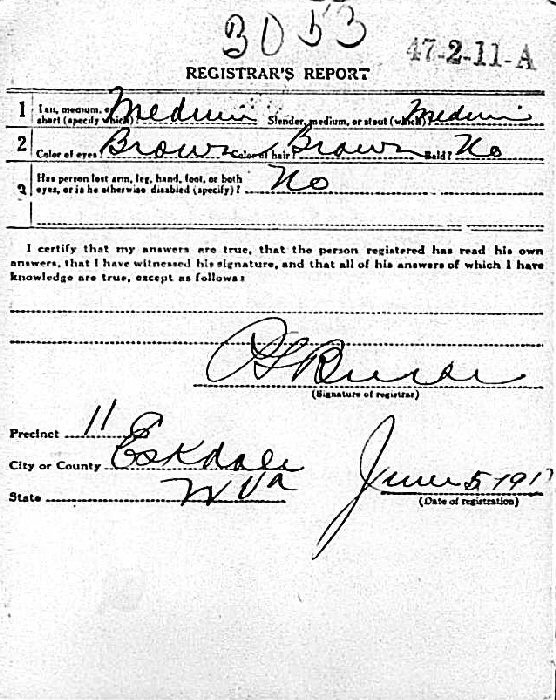 3053
47-2-11-A
REGISTRAR'S REPORT
1 Tall, medium, or short (specify which)? Medium Slender, medium, or stout (which)? Medium
2 Color of eyes? Brown Color of hair? Brown Bald? No
3 Has person lost arm, leg, hand, foot, or both
eyes, or is he otherwise disabled (specify)? No
I certify that my answers are true, that the person registered has read his own
answers, that I have witnessed his signature, and that all of his answers of which I have
knowledge are true, except as follows:
(Signature of registrar)
Precinct 11
City or County Eskdale
State W Va
June 5 1917
(Date of registration)